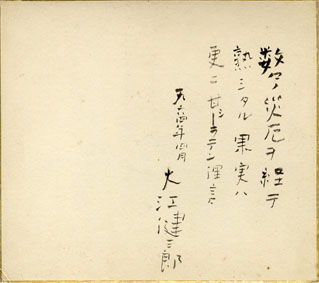 数々ノ災厄ヲ経テ
熟シタル果実ハ
更ニ甘シーラテン俚言
一九六四年四月
大江健三郎